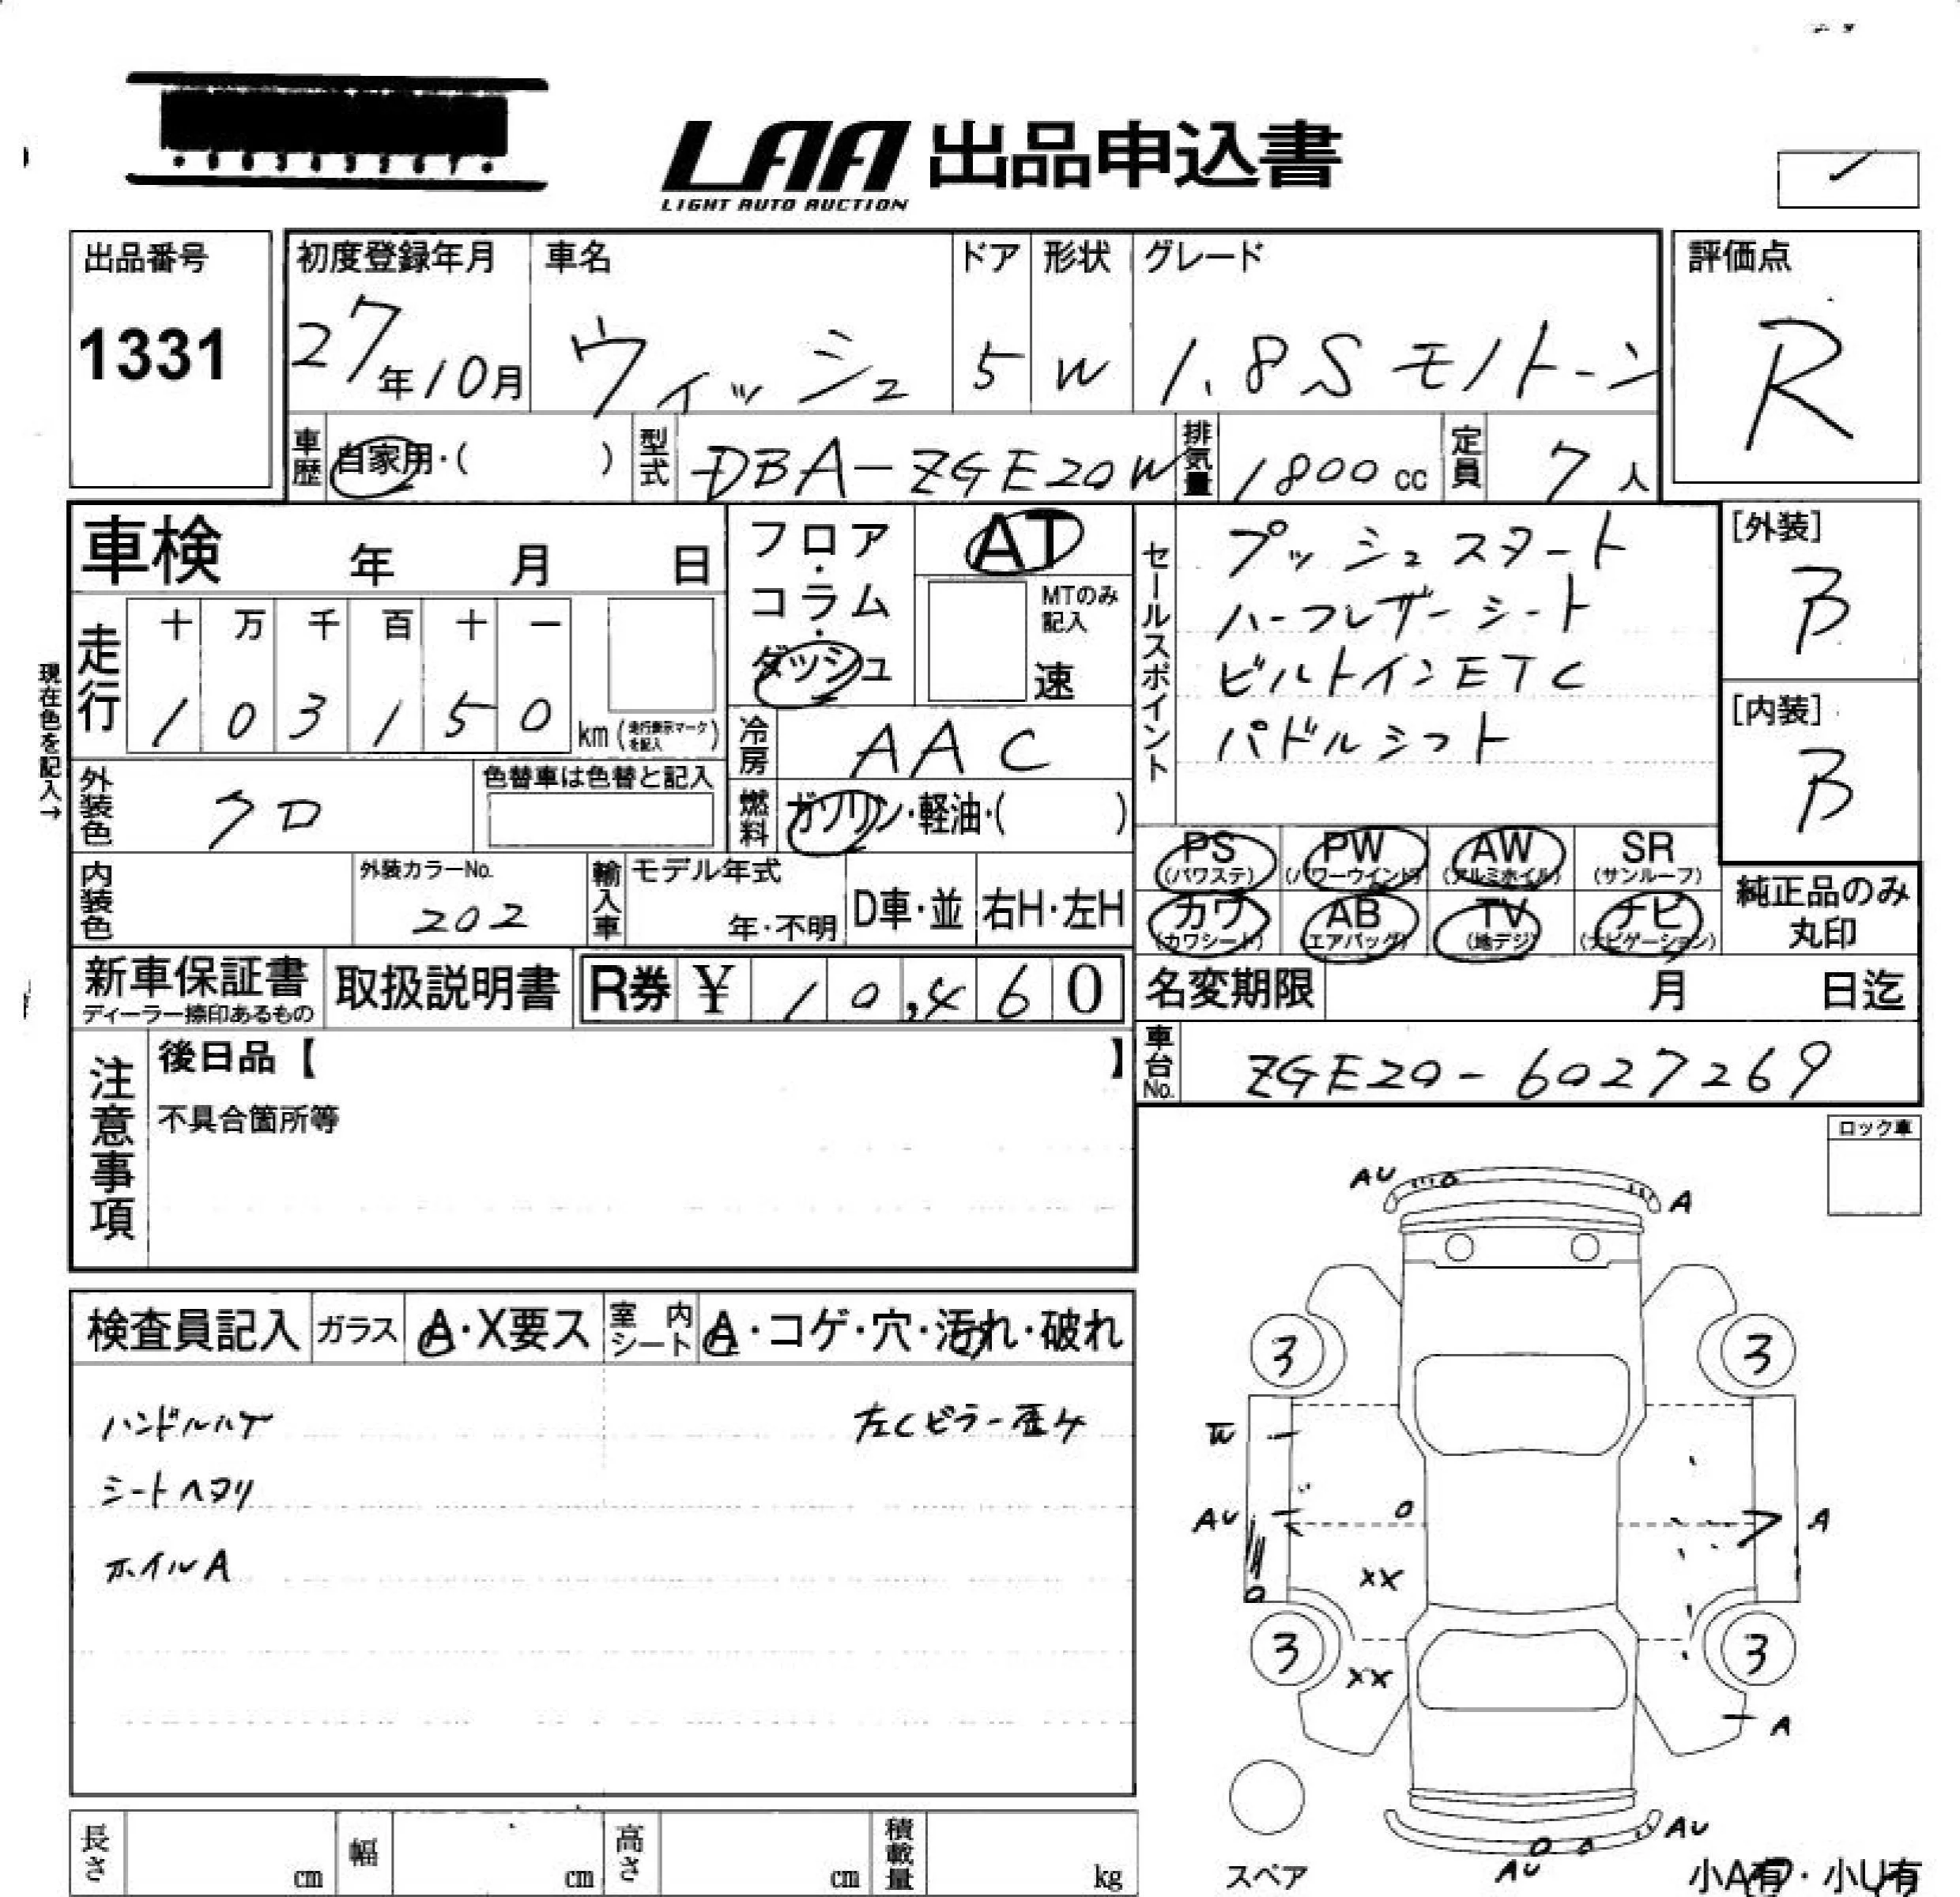 LAA 出品申込書
LIGHT AUTO AUCTION
出品番号
1331
初度登録年月
27年10月
車名
ウィッシュ
ドア
5
形状
W
グレード
1.8S モノトーン
評価点
R
車歴
自家用・( )
型式
DBA-ZGE20W
排気量
1800 cc
定員
7 人
車検 年 月 日
走行
十 万 千 百 十 一
1 0 3 1 5 0
km (走行表示マークを記入)
現在色を記入→
外装色
クロ
色替車は色替と記入
内装色
外装カラーNo.
202
輸入車
モデル年式
年・不明
D車・並
右H・左H
フロア・コラム・ダッシュ
AT
MTのみ記入
速
冷房
AAC
燃料
ガソリン・軽油・( )
セールスポイント
プッシュスタート
ハーフレザーシート
ビルトインETC
パドルシフト
[外装]
B
[内装]
B
PS (パワステ)
PW (パワーウインド)
AW (アルミホイル)
SR (サンルーフ)
カワ (カワシート)
AB (エアバッグ)
TV (地デジ)
ナビ (ナビゲーション)
純正品のみ丸印
新車保証書
ディーラー捺印あるもの
取扱説明書
R券 ¥ 10,460
名変期限 月 日迄
車台No.
ZGE20-6027269
注意事項
後日品【 】
不具合箇所等
ロック車
検査員記入
ガラス
A・X要ス
室内シート
A・コゲ・穴・汚れ・破れ
ハンドルハゲ
左Cピラー歪ケ
シートヘタリ
ホイルA
AU
A
3
3
W
AU
A
XX
3
3
XX
A
AU
AU
スペア
小A有・小U有
長さ cm
幅 cm
高さ cm
積載量 kg